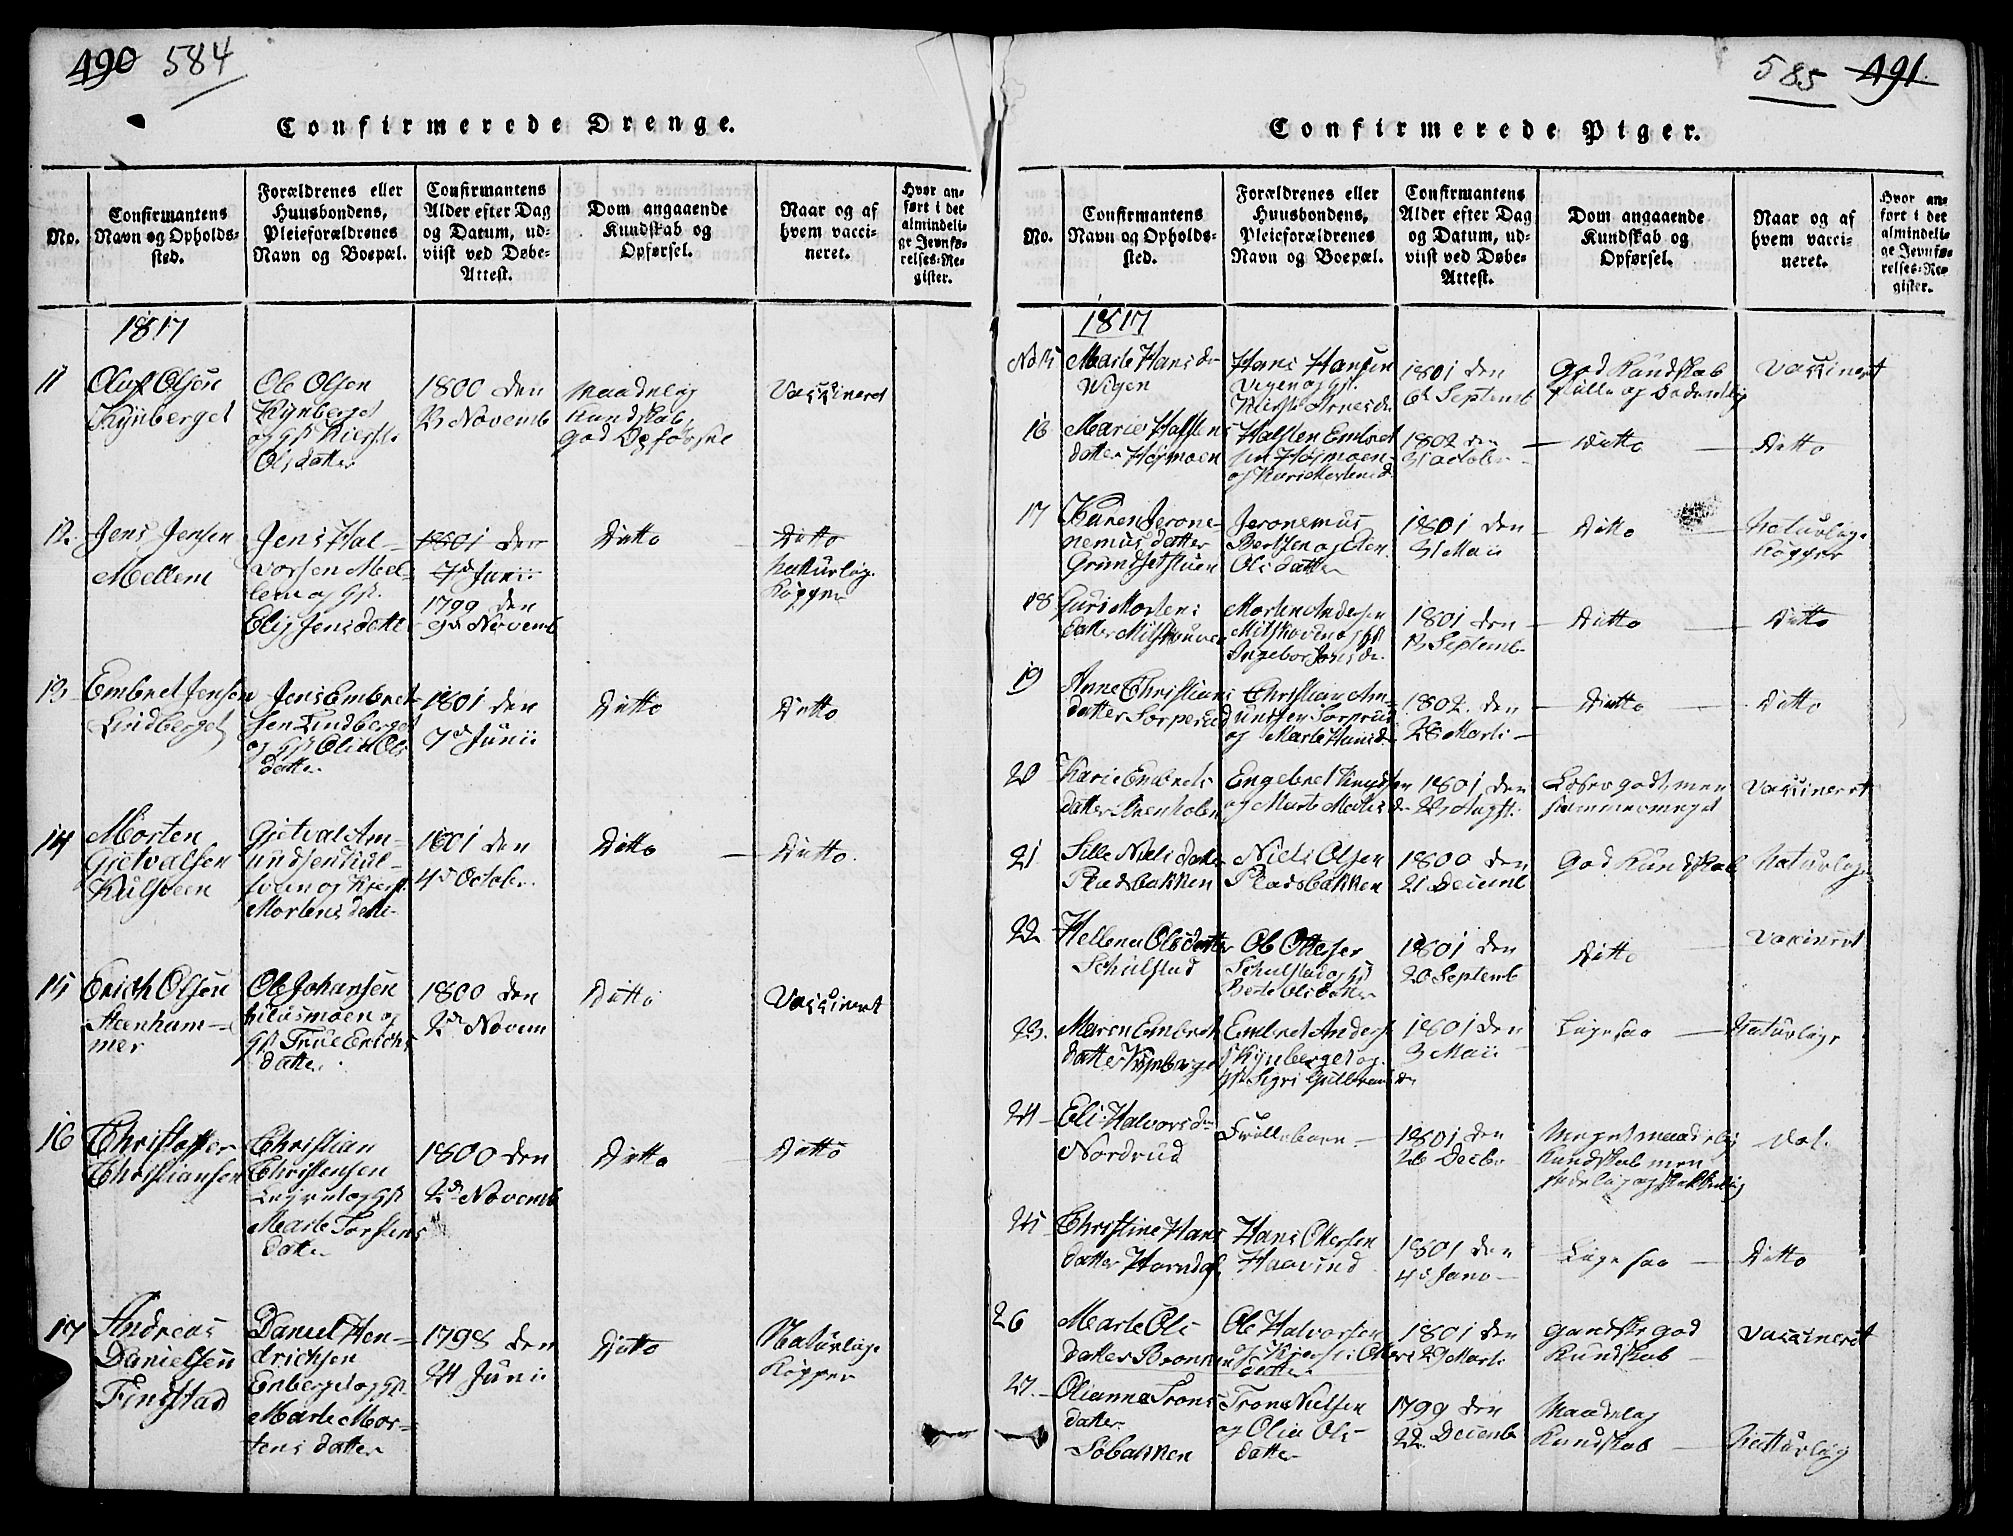 490 584
Confirmerede Drenge.
No.
Confirmantens
Navn og Opholds-
sted.
Forældrenes eller
Huusbondens,
Pleieforældrenes
Navn og Boepæl.
Confirmantens
Alder efter Dag
og Datum, ud-
viist ved Døbe-
Attest.
Dom angaaende
Kundskab og
Opførsel.
Naar og af
hvem vacci-
neret.
Hvor an-
ført i det
almindeli-
ge Jevnfø-
relses-Re-
gister.
1817
11
Oluf Olsen
Kynberget
Ole Olsen
Kynberget
og Gst Kierste
Olsdatter
1800 den
13 Novemb
Maadelig
Kundskab
god Opførsel
Vaccineret
12.
Jens Jensen
Mellem
Jens Hal-
vorsen Mel-
lem og Gst.
Elig Jensdatte
1801 den
7d Junii
1799 den
9de Novemb
Ditto
Ditto
Naturlig.
Kopper
13
Embret Jensen
Lindberget
Jens Embret-
sen Lindberget
og Gst Olia Ols
datter
1801 den
7d Junii
Ditto
Ditto
14
Morten
Gjetvalsen
Kulsveen
Gjetval Am-
undsen Kul-
sveen og Kjerst
Mortensdatte
1801 den
4d October
Ditto
Ditto.
15
Erich Olsen
Steenham-
mer
Ole Johansen
moen og
Gst True Erichs
datter
1800 den
2de Novem
Ditto
Vaccineret
16
Christoffer
Christiansen
Christian
Christensen
og Gst
Marte Torstens
datte
1800 den
2de Novemb
Ditto
Ditto
17
Andreas
Danielsen
Finstad
Daniel Hen-
drichsen
Enberget og Gst
Marte Mor-
tens datter
1798 den
24 Junii
Ditto
Naturlige
Kopper
585 491
Confirmerede Piger.
No.
Confirmantens
Navn og Opholds-
sted.
Forældrenes eller
Huusbondens,
Pleieforældrenes
Navn og Boepæl.
Confirmantens
Alder efter Dag
og Datum, ud-
viist ved Døbe-
Attest.
Dom angaaende
Kundskab og
Opførsel.
Naar og af
hvem vacci-
neret.
Hvor an-
ført i det
almindeli-
ge Jevnfø-
relses-Re-
gister.
1817
No 15
Marte Hansdr
Vigen
Hans Hansen
Vigen og Gst.
Kierste Arnesdr
1801 den
6d Septemb
God Kundskab
stille og Sædelig
Vaccineret
16
Marie Halstens
datter Højmoen
Halsten Embret
sen Højmoen
og Kari Mortensd
1802 den
31 october
Ditto
Ditto
17
Karen Jerone-
nemus datter
Grundsetstuen
Jeronemus
Bertsen og Olen
Olsdatter
1801 den
31 Maii
Ditto
Naturlige
Kopper
18
Guri Mortens
datter Milskouven
Morten Andersen
Milskoven og Gst
Ingebor Jonsdr
1801 den
13 Septemb
Ditto
Ditto
19
Anne Christians
datter Sorperud
Christian Am-
undsen Sorprud
og Marte Hansd
1802 den
28 Marti
Ditto
Ditto
20
Karie Embrets
datter Steenholen
Engebret Knudsen
og Marte Mortensdr
1801 den
23 Augst.
Læser godt, men
Vaccineret
21
Sille Niels datter
Pladsbakken
Niels Olsen
Pladsbakken
1800 den
21 Decemb
God Kundskab
Naturlige
22
Hellena Olsdatter
Schulstad
Ole Ottesen
Schulstad og Gst
Berte Olsdatter
1801 den
20 Septemb
Ditto
Vaccineret
23.
Maren Embret
datter Kynberget
Embret Anders
Kynberget og
Gst Sigri Gulbransdr
1801 den
3 Maii
Ligesaa
Naturlige
24
Eli Halvorsdr
Nordrud
1801 den
26 Decbr
Meget maadelig
Kundskab men
Vac.
25
Christine Hans
datter Horndal
Hans Ottersen
Haavind
1801 den
4de Janu
Ligesaa
Ditto
26
Marte Ols
datter Bronken
Ole Halvorsen
og Kjersti Otters
datter
1801 den
29 Marti
gandske god
Kundskab
Vaccineret
27.
Olianna Trons
datter
Sobakken
Trons Nielsen
og Olia Ols-
datter
1799 den
22 Decemb
Maadelig
Kundskab
Natturlig